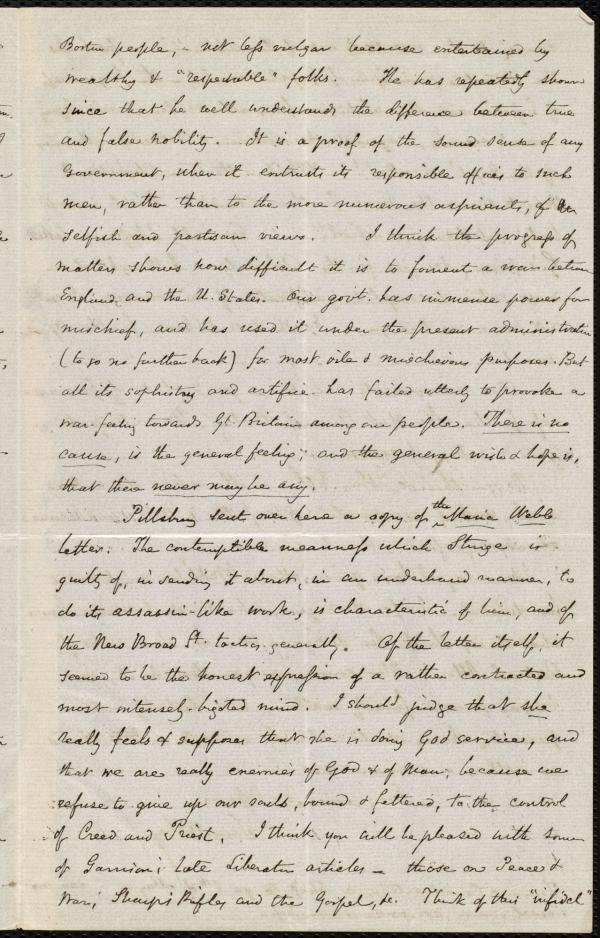 Boston people, - not less vulgar because entertained by
wealthy & "respectable" folks. He has repeatedly shown
since that he well understands the difference between true
and false nobility. It is a proof of the sound sense of any
Government, when it entrusts its responsible offices to such
men, rather than to the more numerous aspirants, of
selfish and partisan views. I think the progress of
matters shows how difficult it is to foment a war between
England and the U. States. Our govt. has immense power for
mischief, and has used it under the present administration
(to go no further back) for most vile & mischievous purposes. But
all its sophistry and artifice has failed utterly to provoke a
war-feeling towards Gt. Britain among our people. There is no
cause, is the general feeling; and the general wish & hope is,
that there never may be any.
Pillsbury sent over here a copy of the Maria Webb
letter. The contemptible meanness which Sturge is
guilty of, in sending it about, in an underhand manner, to
do its assassin-like work, is characteristic of him, and of
the New Broad St. tactics generally. Of the letter itself, it
seemed to be the honest expression of a rather contracted and
most intensely-bigoted mind. I should judge that she
really feels & supposes that she is doing God service, and
that we are really enemies of God & of Man, because we
refuse to give up our souls, bound & fettered, to the control
of Creed and Priest. I think you will be pleased with some
of Garrison's late Liberator articles - those on Peace &
War; Sharp's Rifles and the Gospel, &c. Think of this "infidel"